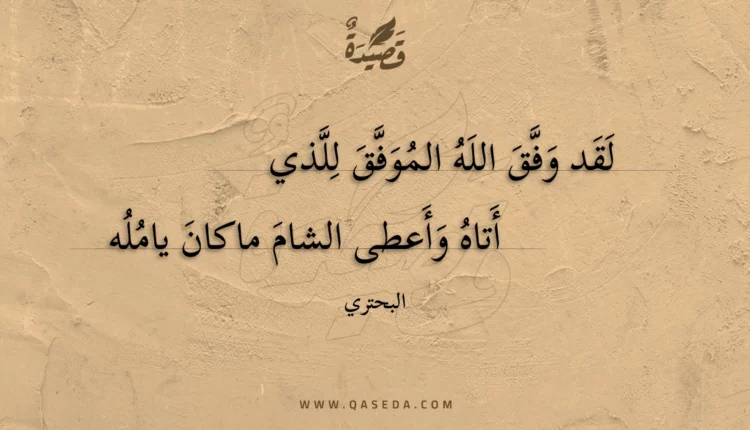 قَصِيدَةٌ
لَقَد وَفَّقَ اللَهُ المُوَفَّقَ لِلَّذي
أَتاهُ وَأَعطى الشامَ ماكانَ يامُلُه
البحتري
WWW.QASEDA.COM